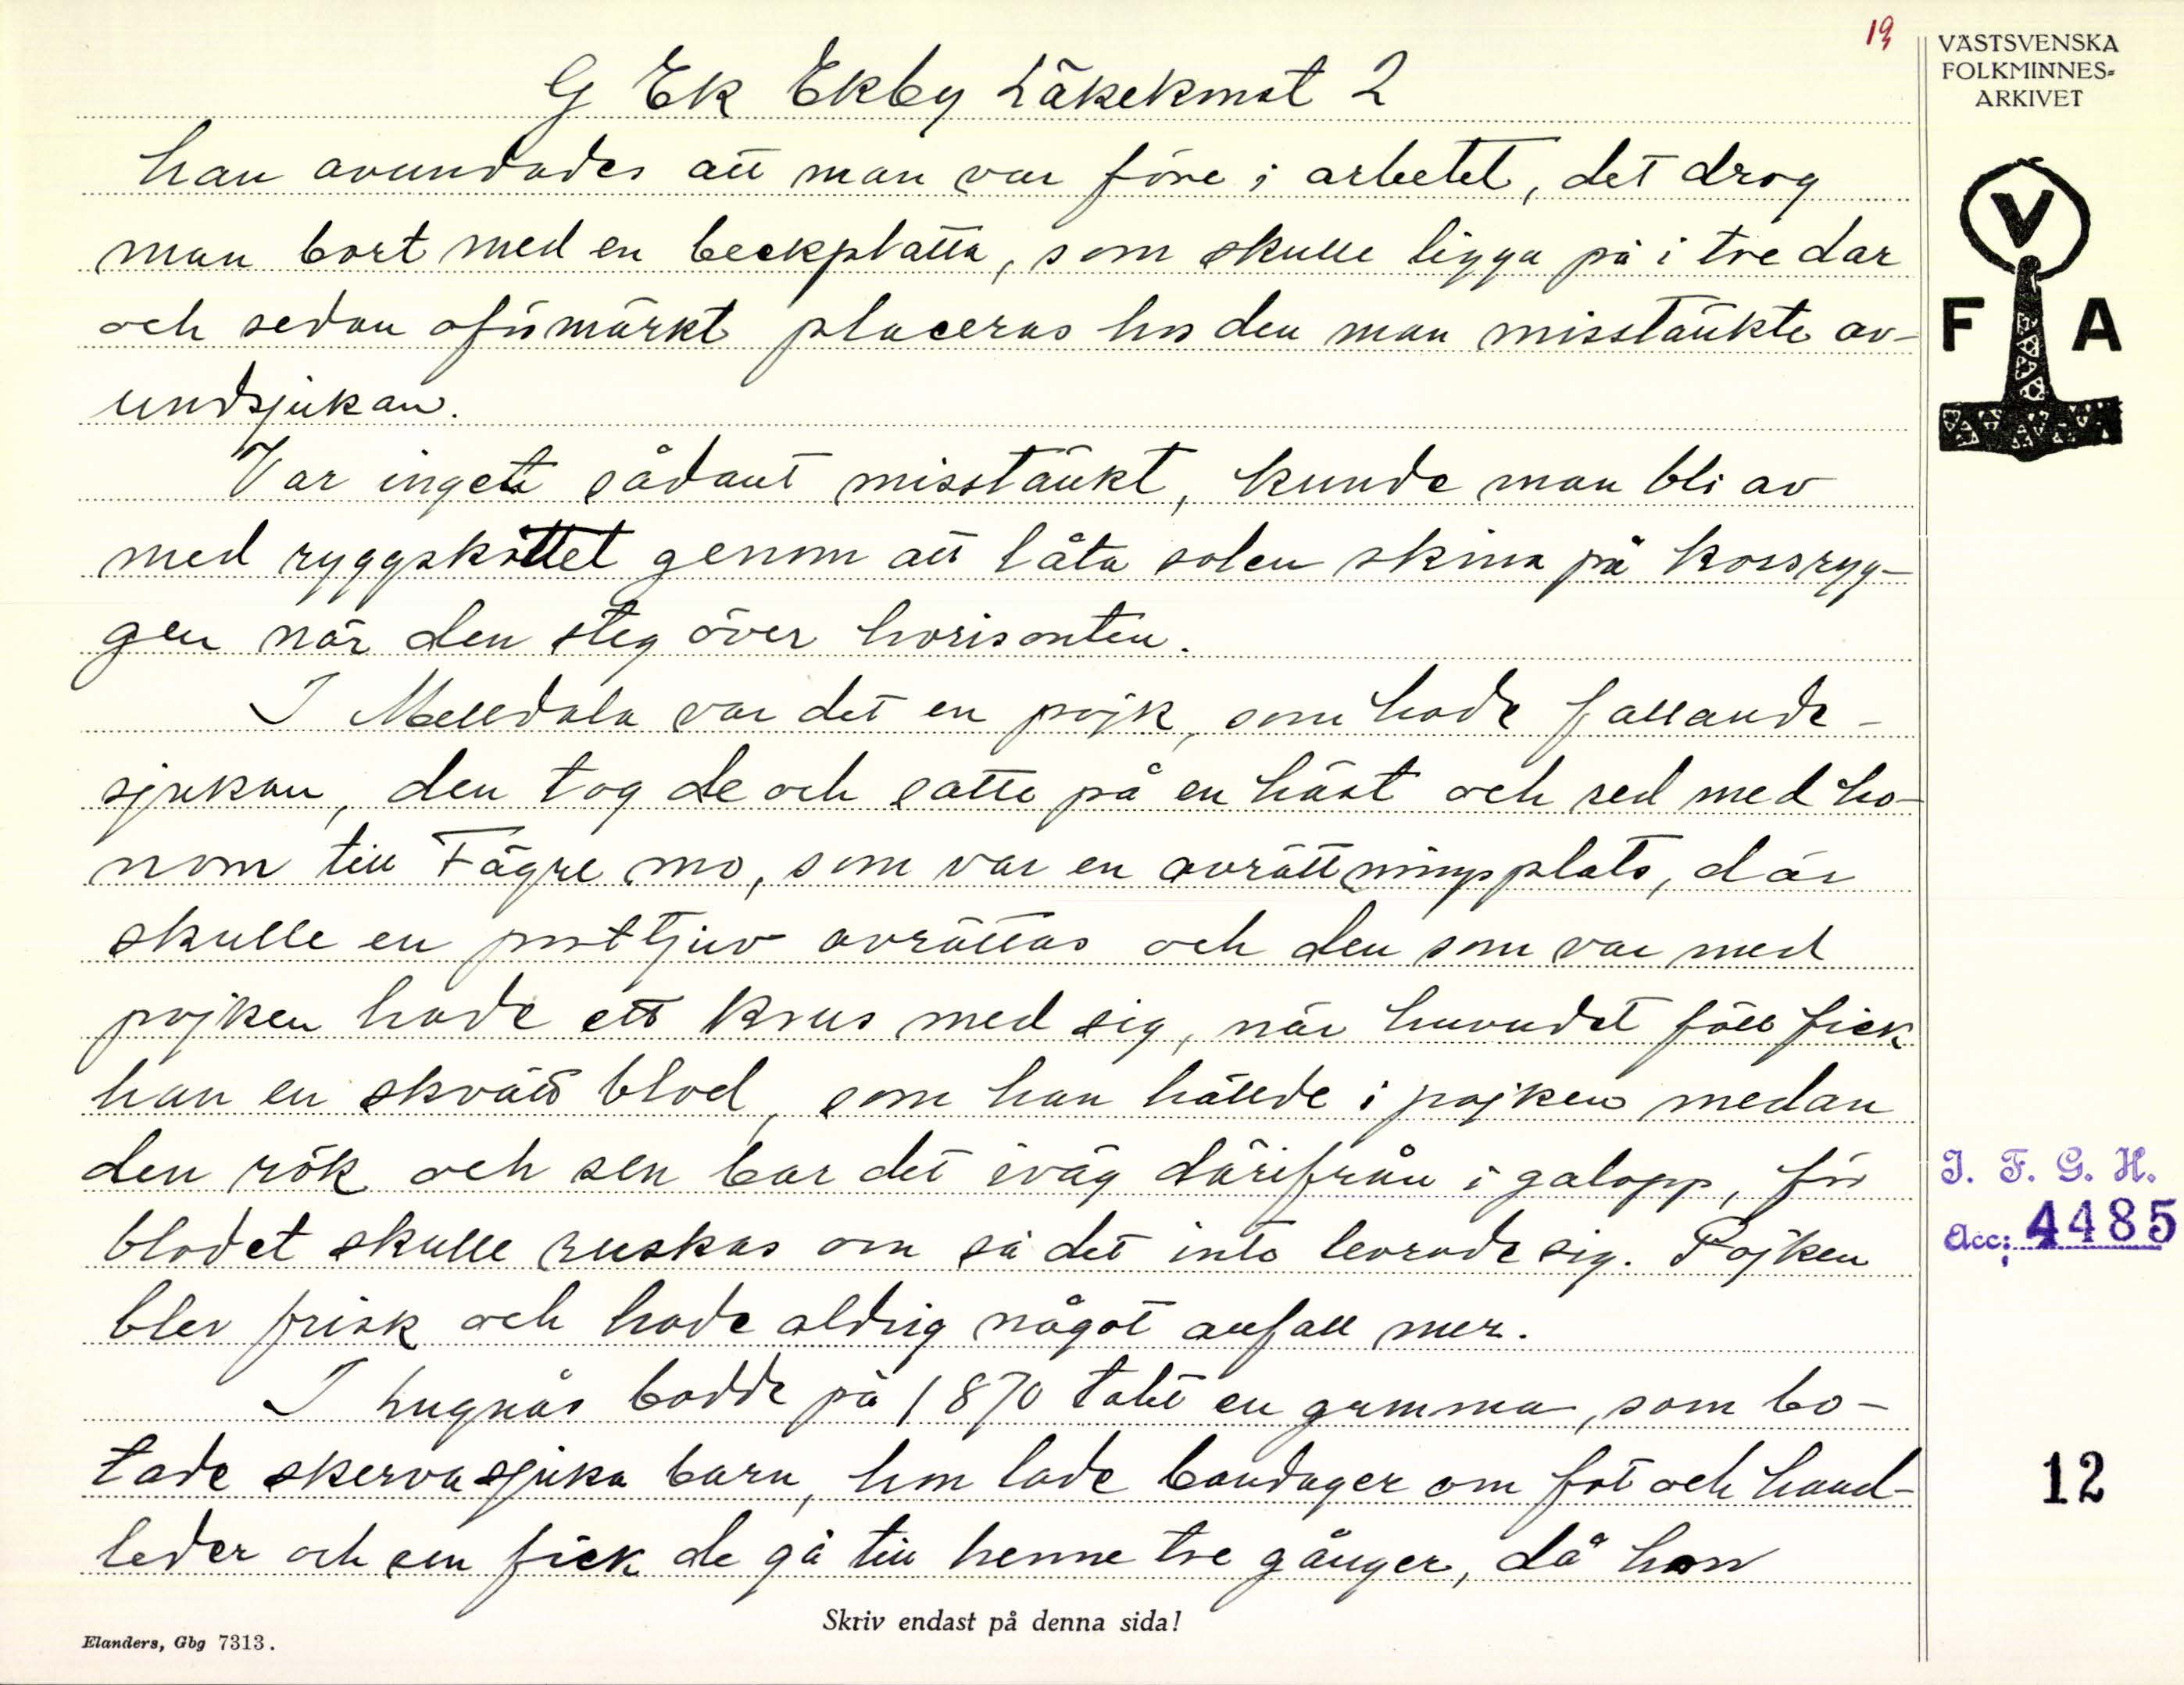 19
VÄSTSVENSKA
FOLKMINNES-
ARKIVET
V
F A
G Ek Ekby Läkekonst 2
han avundades att man var före i arbetet, det drog
man bort med en beckplatta, som skulle ligga på i tre dar
och sedan oförmärkt placeras hos den man misstänkte av-
undsjukan.
Var inget sådant misstänkt, kunde man bli av
med ryggskottet genom att låta solen skina på korsryg-
gen när den steg över horisonten.
I Melldala var det en pojk, som hade fallande-
sjukan, den tog de och satte på en häst och red med ho-
nom till Fägre mo, som var en avrättningsplats, där
skulle en posttjuv avrättas och den som var med
pojken hade ett krus med sig, när huvudet föll fick
han en skvätt blod, som han hällde i pojken medan
den rök och sen bar det iväg därifrån i galopp, för
blodet skulle ruskas om så det inte levrade sig. Pojken
blev frisk och hade aldrig något anfall mer.
I Lugnås bodde på 1870 talet en gumma, som bo-
tade skervasjuka barn, hon lade bandager om fot och hand-
leder och sen fick de gå till henne tre gånger, då hon
I. F. G. H.
Acc: 4485
12
Skriv endast på denna sida!
Elanders, Gbg 7313.